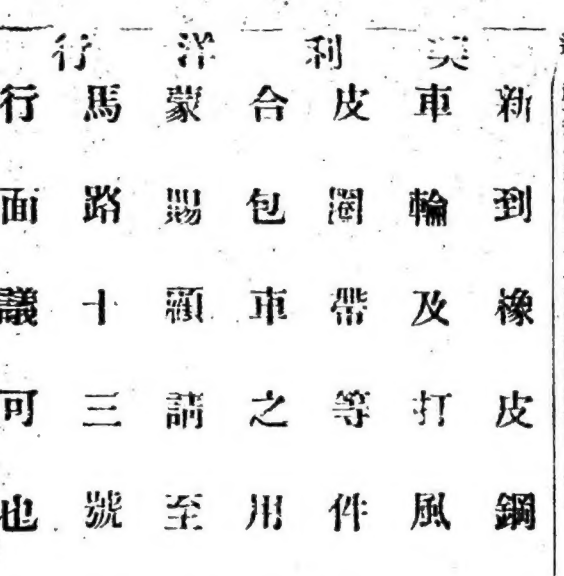 英利洋行
新到橡皮鋼
車輪及打風
皮圈帶等件
合包車之用
蒙賜顧請至
馬路十三號
行面議可也